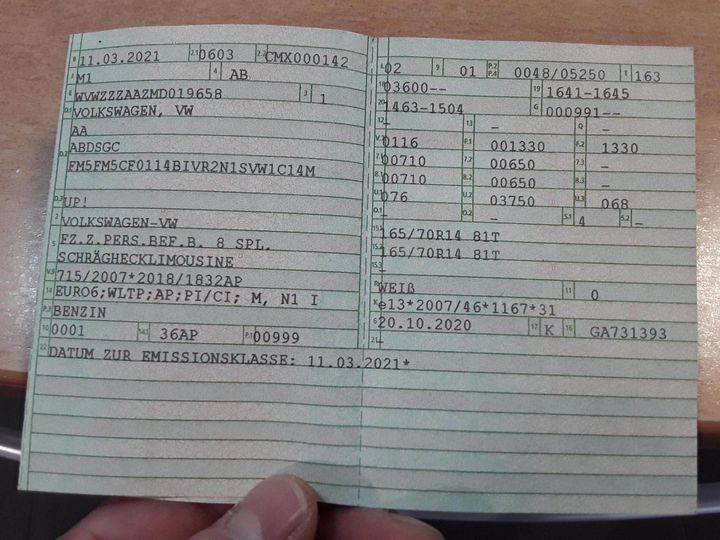 B 11.03.2021 2.1 0603 2.2 CMX000142
J M1 4 AB
E WVWZZZAAZMD019658 3 1
D.1 VOLKSWAGEN, VW
AA
D.2 ABDSGC
FM5FM5CF0114BIVR2N1SVW1C14M
D.3 UP!
2 VOLKSWAGEN-VW
5 FZ.Z.PERS.BEF.B. 8 SPL.
SCHRÄGHECKLIMOUSINE
V.9 715/2007*2018/1832AP
14 EURO6;WLTP;AP;PI/CI; M, N1 I
P.3 BENZIN
10 0001 14.1 36AP P.1 00999
22 DATUM ZUR EMISSIONSKLASSE: 11.03.2021*
L 02 9 01 P.2 P.4 0048/05250 T 163
18 03600-- 19 1641-1645
20 1463-1504 G 000991--
12 - 13 - Q -
V.7 0116 F.1 001330 F.2 1330
7.1 00710 7.2 00650 7.3 -
8.1 00710 8.2 00650 8.3 -
U.1 076 U.2 03750 U.3 068
O.1 - O.2 - S.1 4 S.2 -
15.1 165/70R14 81T
15.2 165/70R14 81T
15.3 -
R WEIß 11 0
K e13*2007/46*1167*31
6 20.10.2020 17 K 16 GA731393
21 -